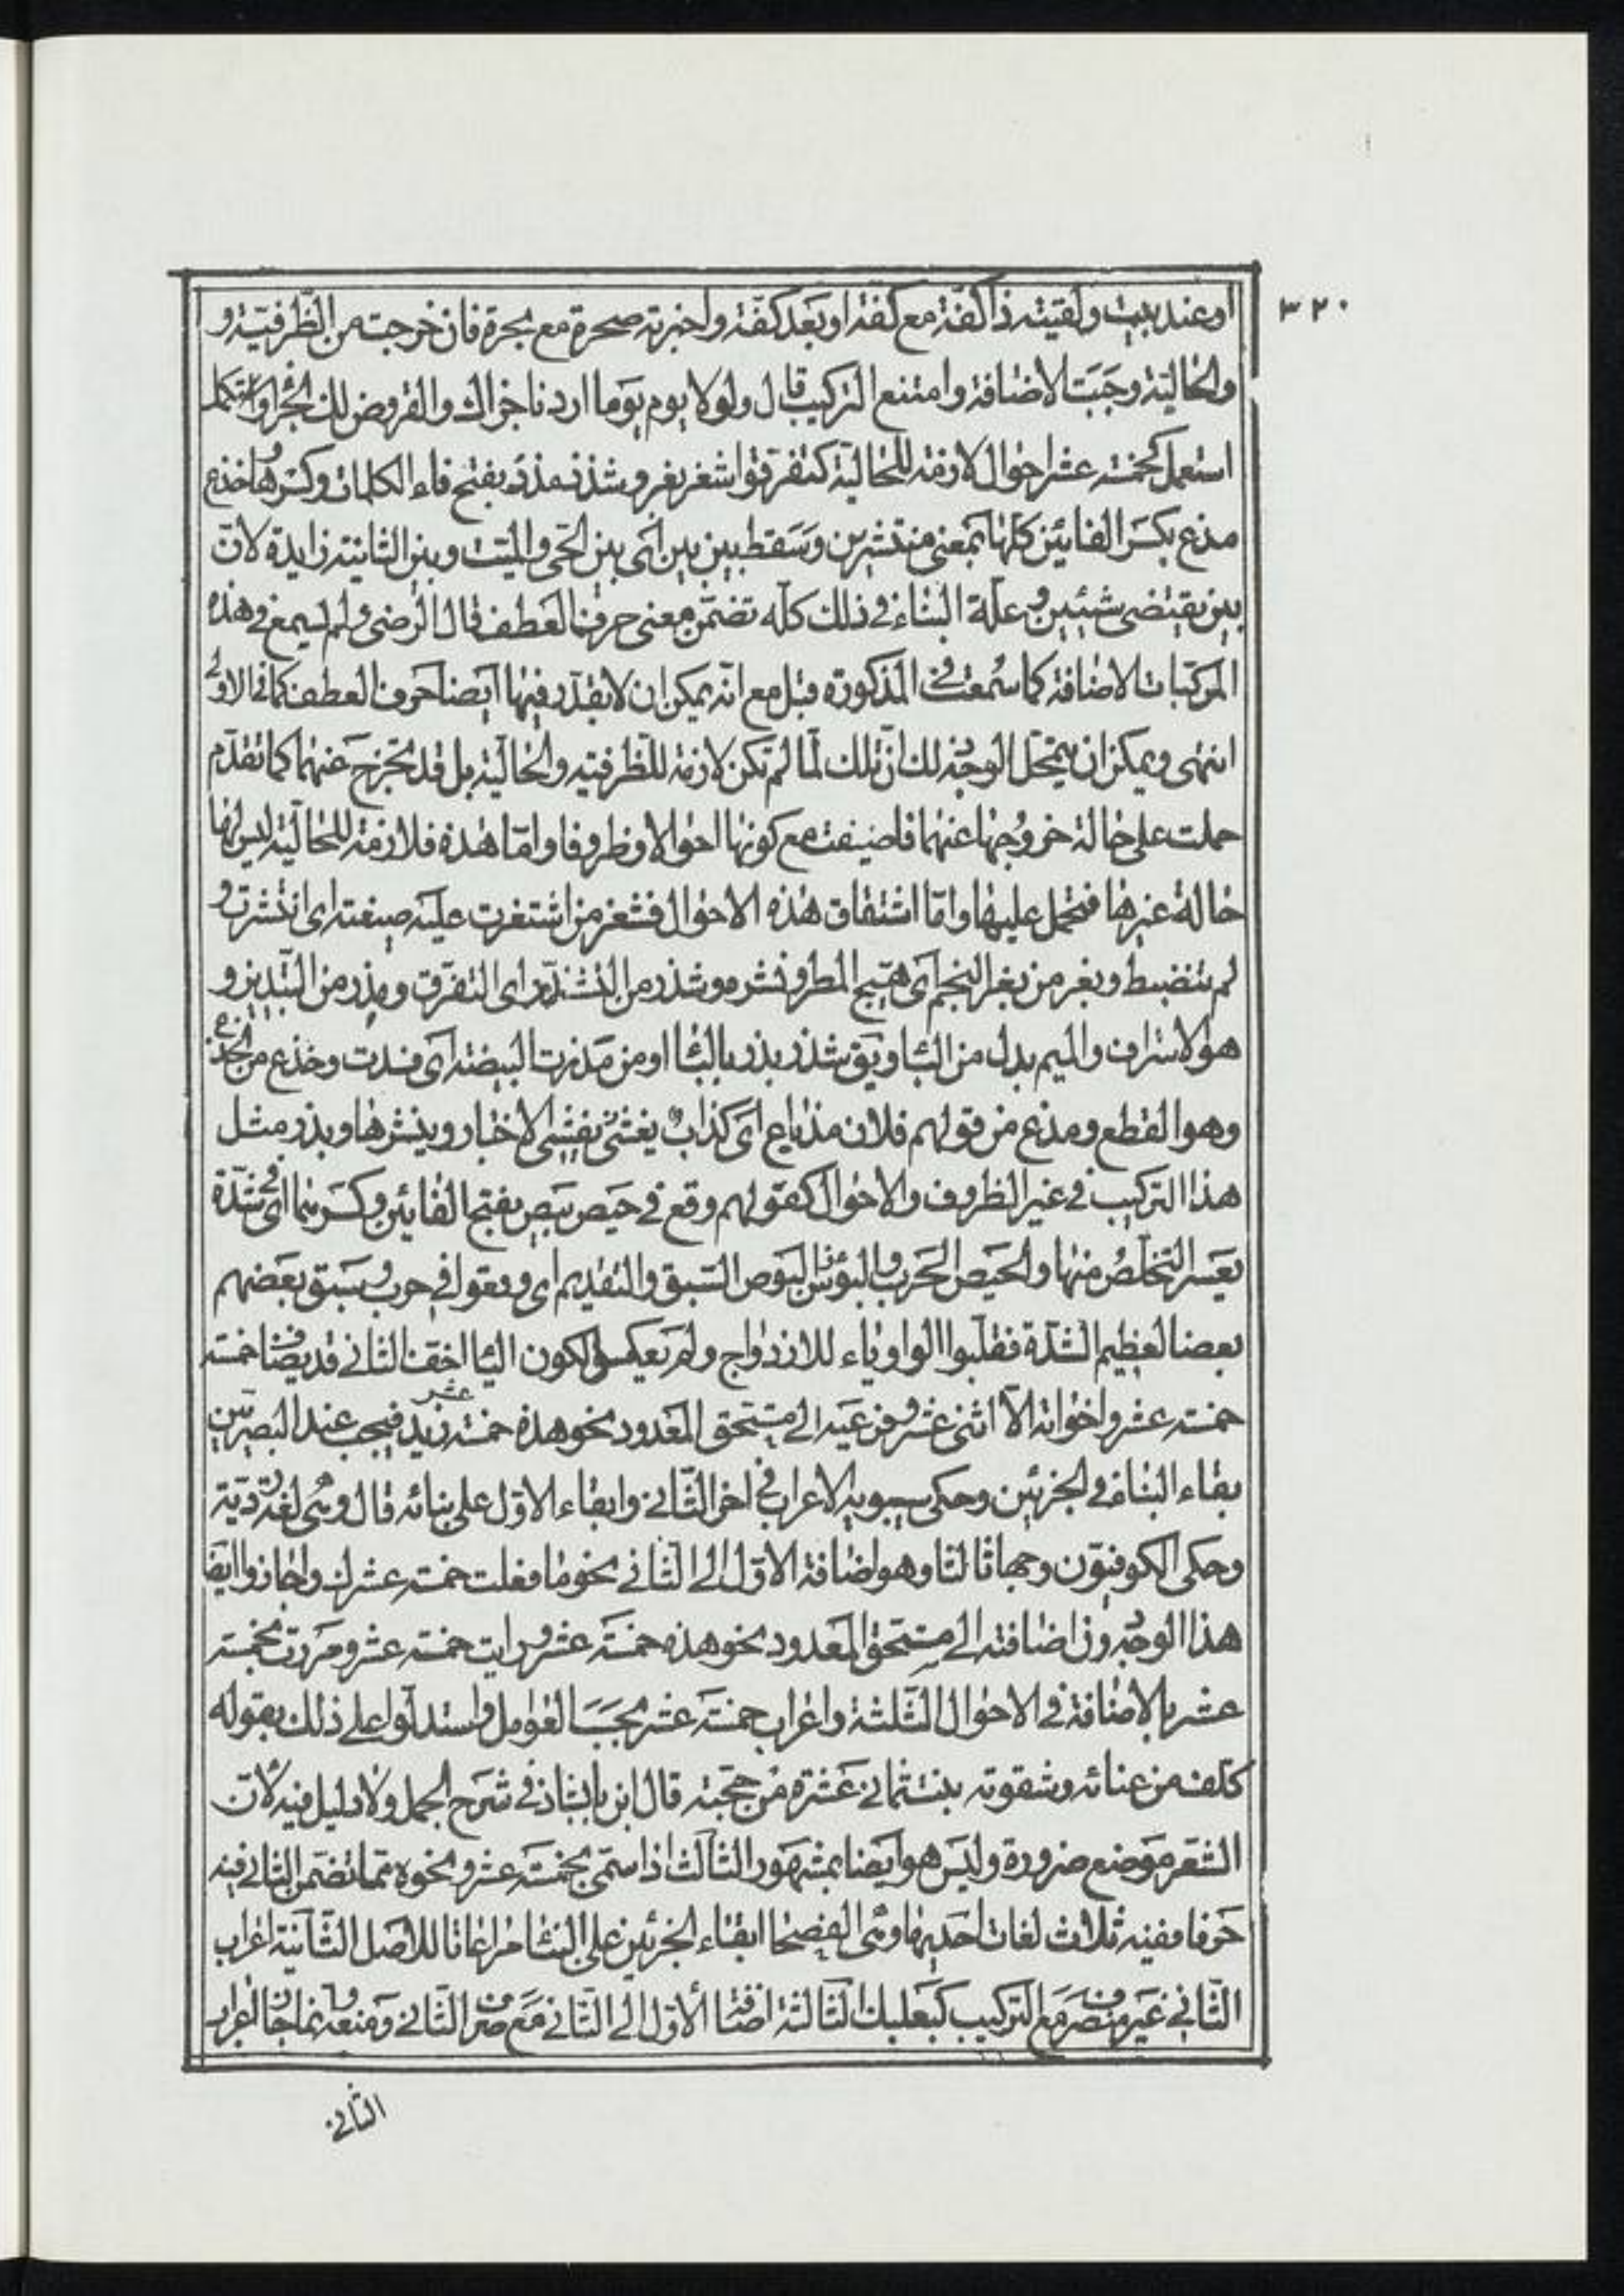 ٣٢٠
او عند بيت ولقيته ذا كفّة مع كفّة او بعد كفّة واخبرته صحرة مع بحرة فان خرجت من الظّرفيّة و
والحالية وجبت الاضافة وامتنع التركيب قال ولولا يوم يوم ما اردنا جزاك والقروض لها جزاء
استعمل كخمسة عشر احوال لازمة للحالية كتفرقوا شغر بغر وشذر مذر بفتح فاء الكلمات وكسرها وخذع
مذع بكسر الفائين كلها بمعنى منتشرين وسقط بين بين اى بين الحى والميت وبين الثانية زايدة لان
بين يقتضى شيئين وعلّة البناء فى ذلك كلّه تضمّن معنى حرف العطف قال الرضى ولم يسمع فى هذه
المركبات الاضافة كما سمعت فى المذكورة قبل مع انّه يمكن ان لا يقدّر فيها ايضا حرف العطف كما فى الاولى
انتهى ويمكن ان يتمحّل الوجه لك انّ تلك لمّا لم تكن لازمة للظرفية والحالية بل قد تخرج عنهما كما تقدّم
حملت على حالة خروجها عنهما فاضيفت مع كونها احوالا وظروفا وامّا هذه فلازمة للحالية ليس لها
حالة غيرها فتحمل عليها وامّا اشتقاق هذه الاحوال فشغر من اشتغرت عليه ضيعته اى انتشرت و
لم تنضبط وبغر من بغر النجم اى هيّج المطر ونشره وشذر من التشذّر اى التفرّق ومذر من التبذير و
هو الاسراف والميم بدل من البا ويق شذر بذر بالبا او من مذرت البيضة اى فسدت وخذع من الخذع
وهو القطع ومذع من قولهم فلان مذّاع اى كذاب يفشى الاخبار وينشرها ويذر مثل
هذا التركيب فى غير الظروف والاحوال كقولهم وقع فى حيص بيص بفتح الفائين وكسرهما اى فى شدّة
يعسر التخلّص منها والحيص الهرب والبوص السبق والتقديم اى وقعوا فى هرب وسبق بعضهم
بعضا لعظيم الشدّة فقلبوا الواو ياء للازدواج ولم يعكس لكون اليا اخف الثانى قد يضاف خمسة
خمسة عشر واخواته الّا اثنى عشر وفرعيه الى مستحق المعدود نحو هذه خمسة عشر زيد فيجب عند البصريين
بقاء البناء فى الجزئين وحكى سيبويه الاعراب فى اخر الثانى وابقاء الاوّل على بنائه قال وهى لغة رديّة
وحكى الكوفيون وجها ثالثا وهو اضافة الاوّل الى الثانى نحو ما فعلت خمسة عشرك واجازوا ايضا
هذا الوجه دون اضافته الى مستحق المعدود نحو هذه خمسة عشر ورايت خمسة عشر ومررت بخمسة
عشر بالاضافة فى الاحوال الثلثة واعراب خمسة عشر بحسب العوامل واستدلّوا على ذلك بقوله
كلّف من عنائه وشقوته بنت ثمانى عشرة من حجّته قال ابن بابشاذ فى شرح الجمل ولا دليل فيه لانّ
الشعر موضع ضرورة وليس هو ايضا بمشهور الثالث اذا سمّى بخمسة عشر ونحوه ممّا تضمّن الثانى فيه
حرفا ففيه ثلاث لغات احديها وهى الفصحا ابقاء الجزئين على البنا مراعاتا للاصل الثانية اعراب
الثانى غير منصرف مع التركيب كبعلبك الثالثة اضافة الاوّل الى الثانى مع صرف الثانى ومنعه
الثانى